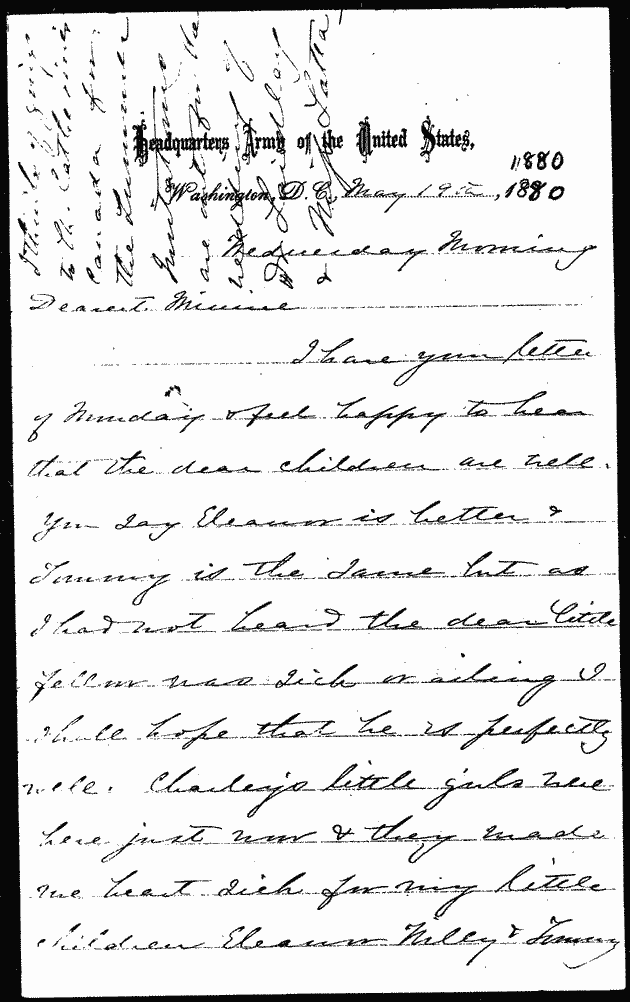 Headquarters Army of the United States,
1880
Washington, D. C., May 19th, 1880
Wednesday Morning
Dearest Minnie
I have your letter
of Monday & feel happy to hear
that the dear children are well.
You say Eleanor is better &
Tommy is the same but as
I had not heard the dear little
fellow was sick or ailing I
shall hope that he is perfectly
well. Charley's little girls were
here just now & they made
me heart sick for my little
children Eleanor Willy & Tommy
I think of going
to St. Catherines
Canada for
the Summer
Invitations
are out for the
wedding of
Lindsay
&